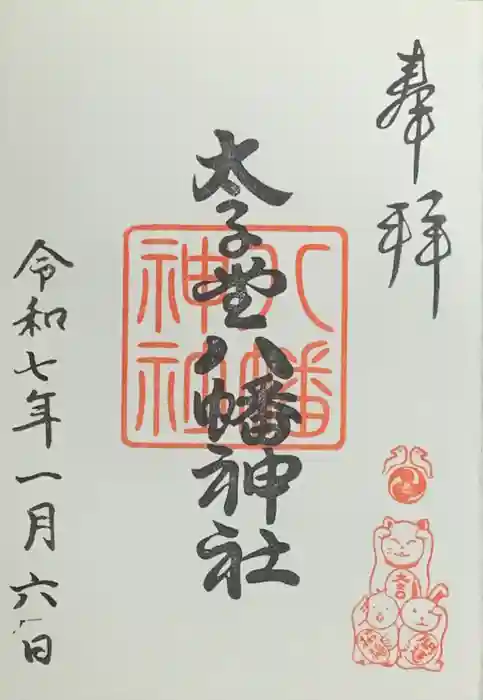 奉拝
太子堂八幡神社
八幡
神社
令和七年一月六日
大吉